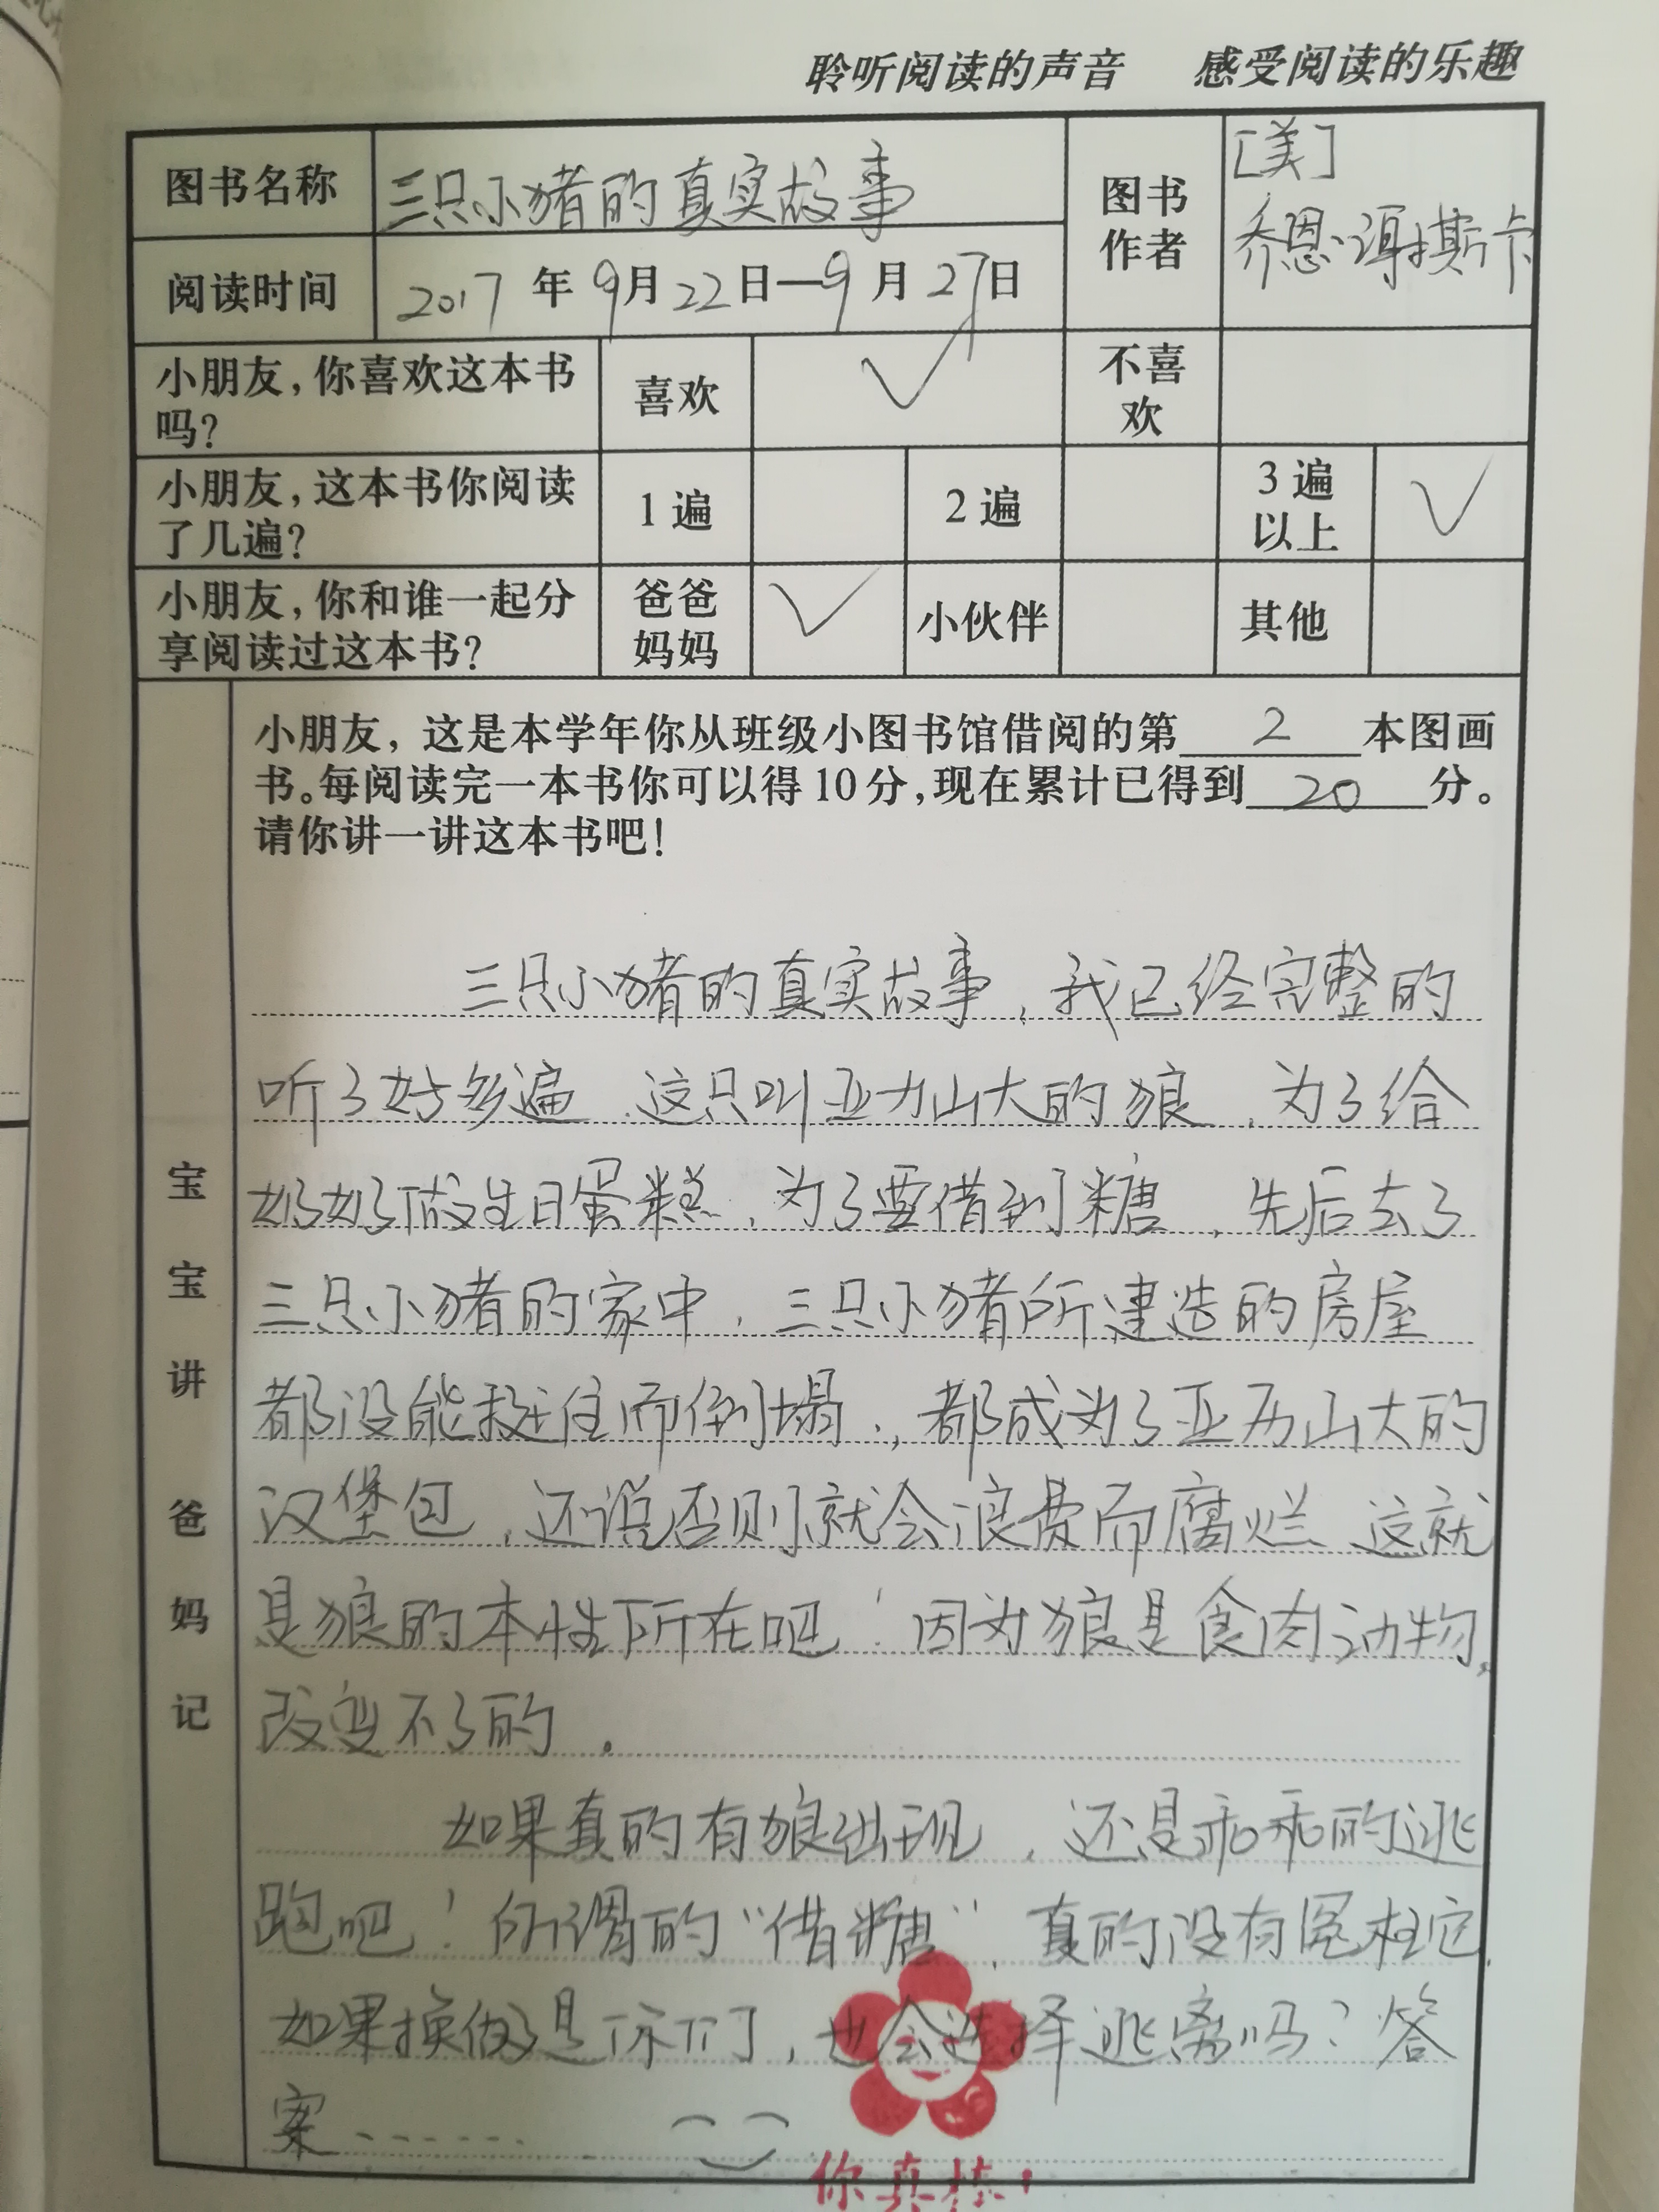 聆听阅读的声音 感受阅读的乐趣
图书名称 三只小猪的真实故事 图书作者 [美]乔恩·谓斯卡
阅读时间 2017年9月22日—9月27日
小朋友,你喜欢这本书吗? 喜欢 ✓ 不喜欢
小朋友,这本书你阅读了几遍? 1遍 2遍 3遍以上 ✓
小朋友,你和谁一起分享阅读过这本书? 爸爸妈妈 ✓ 小伙伴 其他
宝宝讲 爸妈记
小朋友,这是本学年你从班级小图书馆借阅的第2本图画
书。每阅读完一本书你可以得10分,现在累计已得到20分。
请你讲一讲这本书吧!
三只小猪的真实故事,我已经完整的
听了好多遍.这只叫亚力山大的狼,为了给
奶奶做生日蛋糕,为了要借到糖,先后去了
三只小猪的家中,三只小猪所建造的房屋
都没能挺住而倒塌.,都成为了亚历山大的
汉堡包,还说否则就会浪费而腐烂.这就
是狼的本性所在吧!因为狼是食肉动物,
改变不了的。
如果真的有狼出现,还是乖乖的逃
跑吧!所谓的“借糖”,真的没有冤枉它.
如果换做是你们,也会选择逃离吗?答
案……
你真棒!